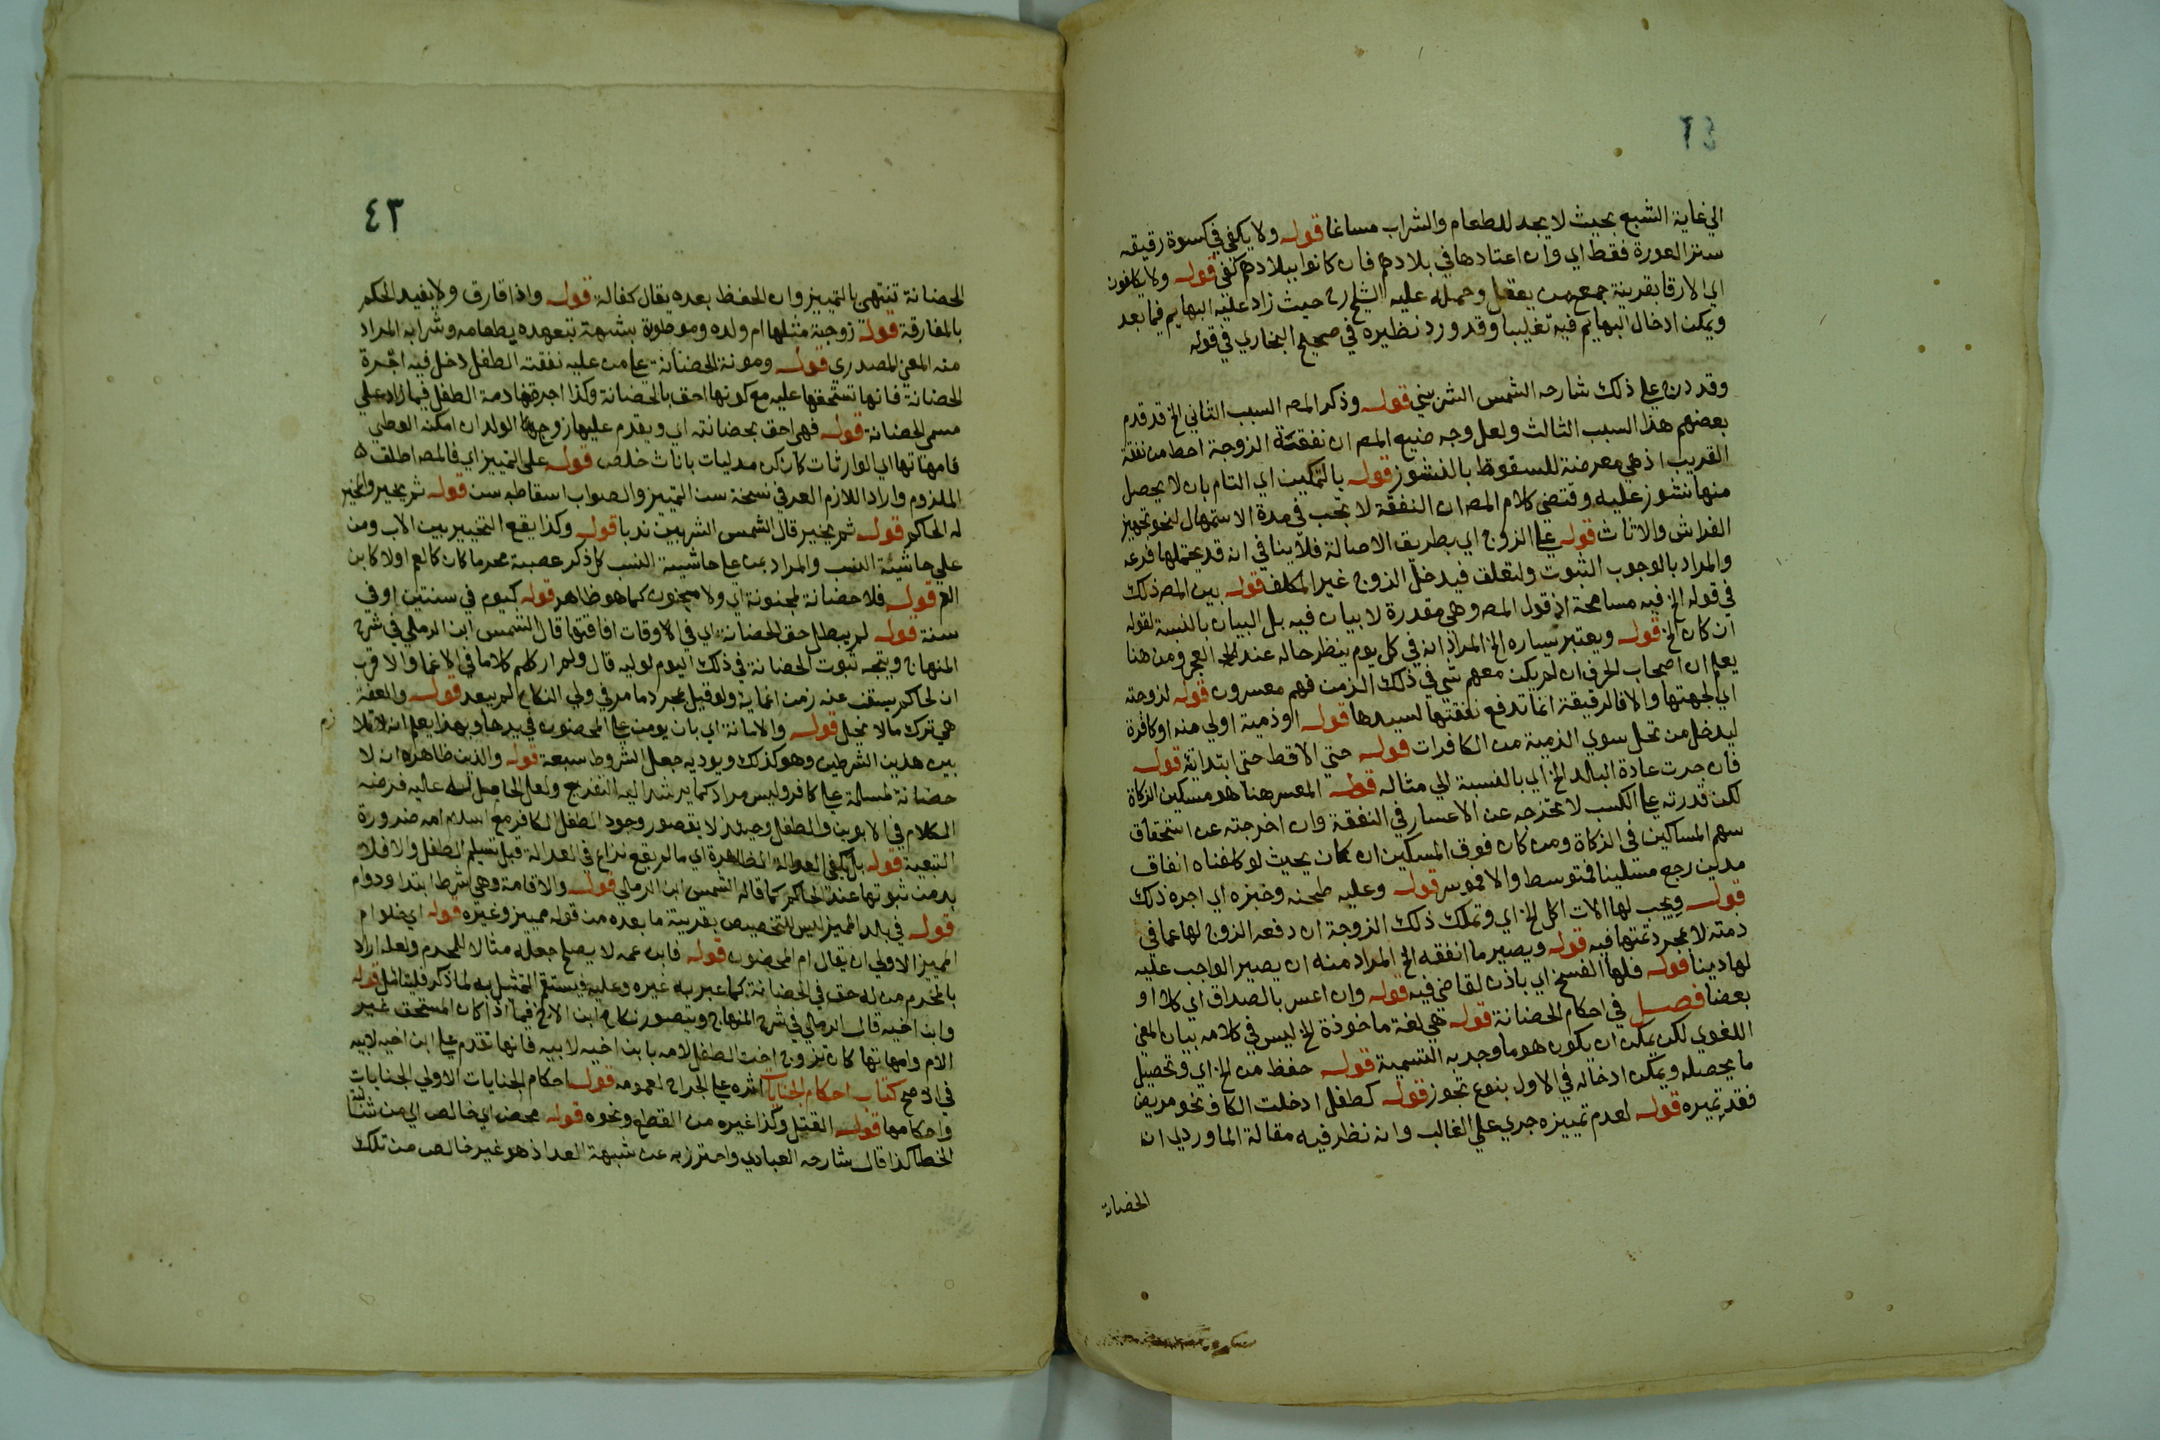 ٤٢
الي غاية الشبع بحيث لا يجد للطعام والشراب مساغا قوله ولا يكفي في كسوة رقيقه
ستر العورة فقط اي وان اعتادها في بلادهم فان كانوا ببلادهم كفي قوله ولا يكلفون
اي الارقا بقرينة جمع من يعقل وحمله عليه الشلح ر حيث زاد عليه البهايم فيما بعد
ويمكن ادخال البهايم فيه تغليبا وقد ورد نظيره في صحيح البخاري في قوله
وقد درج علي ذلك شارحه الشمس الشربيني قوله وذكر المصـ السبب الثاني الخ قد قدم
بعضهم هذا السبب الثالث ولعل وجه صنيع المصـ ان نفقة الزوجة احط من نفقة
القريب اذ هي معرضة للسقوط بالنشوز قوله بالتمكين اي التام بان لا يحصل
منها نشوز عليه ومقتضي كلام المصـ ان النفقة لا تجب في مدة الاستمهال لنحو تجهيز
الفراش والاثاث قوله علي الزوج اي بطريق الاصالة فلا ينافي انه قد يتحملها فرعه
والمراد بالوجوب الثبوت والتعلق فيدخل الزوج غير المكلف قوله بين المصـ ذلك
في قوله الخ فيه مسامحة اذ قول المصـ وهي مقدرة لا بيان فيه بل البيان بالنسبة لقوله
ان كان الخ قوله ويعتبر يساره الخ المراد انه في كل يوم ينظر حاله عند الفجر ومن هنا
يعلم ان اصحاب الحرف ان لم يكن معهم شي في ذلك الزمن فهم معسرون قوله لزوجته
اي لجهتها والا فالرقيقة انما تدفع نفقتها لسيدها قوله او ذمية اولي منه او كافرة
ليدخل من تحل سوي الذمية من الكافرات قوله حتي الاقط حتي ابتدائية قوله
فان جرت عادة البلد الخ اي بالنسبة الي مثاله قوله المعسر هنا هو مسكين الزكاة
لكن قدرته علي الكسب لا تخرجه عن الاعسار في النفقة وان اخرجته عن استحقاق
سهم المساكين في الزكاة ومن كان فوق المسكين ان كان بحيث لو كلفناه انفاق
مدين رجع مسكينا فمتوسط والا فموسر قوله وعليه طحنه وخبزه اي اجره ذلك
قوله ويجب لها الات اكل الخ اي وتملك ذلك الزوجة ان دفعه الزوج لها عما في
ذمته لا بمجرد تمتها فيه قوله ويصير ما انفقه الخ المراد منه ان يصير الواجب عليه
لها دينا قوله فلها الفسخ اي باذن لقاضي فيه قوله وان اعسر بالصداق اي كلا او
بعضا فصل في احكام الحضانة قوله هي لغة ماخوذة الخ ليس في كلامه بيان المعني
اللغوي لكن يمكن ان يكون هو ما وجد به التسمية قوله حفظ من الخ اي وتحصيل
ما يحصله ويمكن ادخاله في الاول بنوع تجوز قوله كطفل ادخلت الكاف نحو مريض
فقد تميزه قوله لعدم تمييزه جري علي الغالب وانه نظر فيه مقالة الماوردي ان
الحضانة
٤٣
الحضانة تنتهي بالتمييز وان الحفظ بعده يقال كفالة قوله واذا فارق ولا يفيد الحكم
بالمفارقة قوله زوجية مثلها ام ولده وموطوءة بشبهة تعهده بطعامه وشرابه المراد
منه المعني المصدري قوله ومونة الحضانة علي من عليه نفقة الطفل دخل فيه اجرة
الحضانة فانها تستحقها عليه مع كونها احق بالحضانة وكذا اجرة خادمة الطفل فيما زاد علي
مسمي الحضانة قوله فهي احق بحضانته اي ويقدم عليها زوجها الولد ان امكنه الوطي
فامهاتها اي الوارثات كان كن مدليات باناث خلص قوله علي التمييز اي فالمصـ اطلق
الملزوم واراد اللازم العرفي نسخة سن التمييز والصواب اسقاطه سن قوله ثم يخير والمخير
له الحاكم قوله ثم يخير قال الشمس الشربيني ندبا قوله وكذا يقع التخيير بين الاب ومن
علي حاشية النسب والمراد بمن علي حاشية النسب كل ذكر عصبة محرما كان كالعم او لا كابن
العم قوله فلا حضانة لمجنونة اي ولا مجنون كما هو ظاهر قوله كيوم في سنتين او في
سنة قوله لم يبطل حق الحضانة اي في الاوقات افاقتها قال الشمس ابن الرملي في شرح
المنهاج ويتجه ثبوت الحضانة في ذلك اليوم لوليه قال ولم ار لهم كلاما في الاغما والاقرب
ان لحاكم يستنيب عنه زمن اغمايه ولو قيل بمجرد ما مر في ولي النكاح لم يبعد قوله والعفة
هي ترك ما لا يحل قوله والامانة اي بان يومن علي المحضون في يدها وبهذا يعلم انه لا تلا
زم
بين هذين الشرطين وهو كذلك ويوديه جعل الشروط سبعة قوله والدين ظاهره انه لا
حضانة لمسلمة علي كافر وليس مراد كما يرشد اليه التفريع ولعل الحامل له عليه فرضه
الكلام في الابوين والطفل وحينئذ لا يتصور وجود الطفل الكافر مع اسلام امه ضرورة
التبعية قوله بل تكفي العدالة الظاهرة اي ما لم يقع نزاع في العدالة قبل تسليم الطفل والا فلا
بد من ثبوتها عند الحاكم كما قاله الشمس ابن الرملي قوله والاقامة وهي شرط ابتدا ودوام
قوله في بلد المميز ليس للتخصيص بقرينة ما بعده من قوله مميز وغيره قوله اي خلو ام
المميز الاولي ان يقال ام المحضون قوله فابن عمه لا يصلح جعله مثالا للمحرم ولعله اراد
بالمحرم من له حق في الحضانة كما عبر به غيره وعليه فيستقيم التمثيل به لما ذكر فليتامل قوله
وابن اخيه قال الرملي في شرح المنهاج ويتصور نكاح ابن الاخ فيما اذا كان المستحق غير
الام وامهاتها كان تزوج اخت الطفل لامه بابن اخيه لابيه فانها تقدم علي ابن اخيه لابيه
في الاصح كتاب احكام الجنايات اثره علي الجراح لعمومه قوله احكام الجنايات الاولي الجنايات
واحكامها قوله القتل وكذا غيره من القطع ونحوه قوله محض اي خالص اي من شائبة
الخطا كذا قال شارحه العبادي واحترز به عن شبهة العمد اذ هو غير خالص من تلك